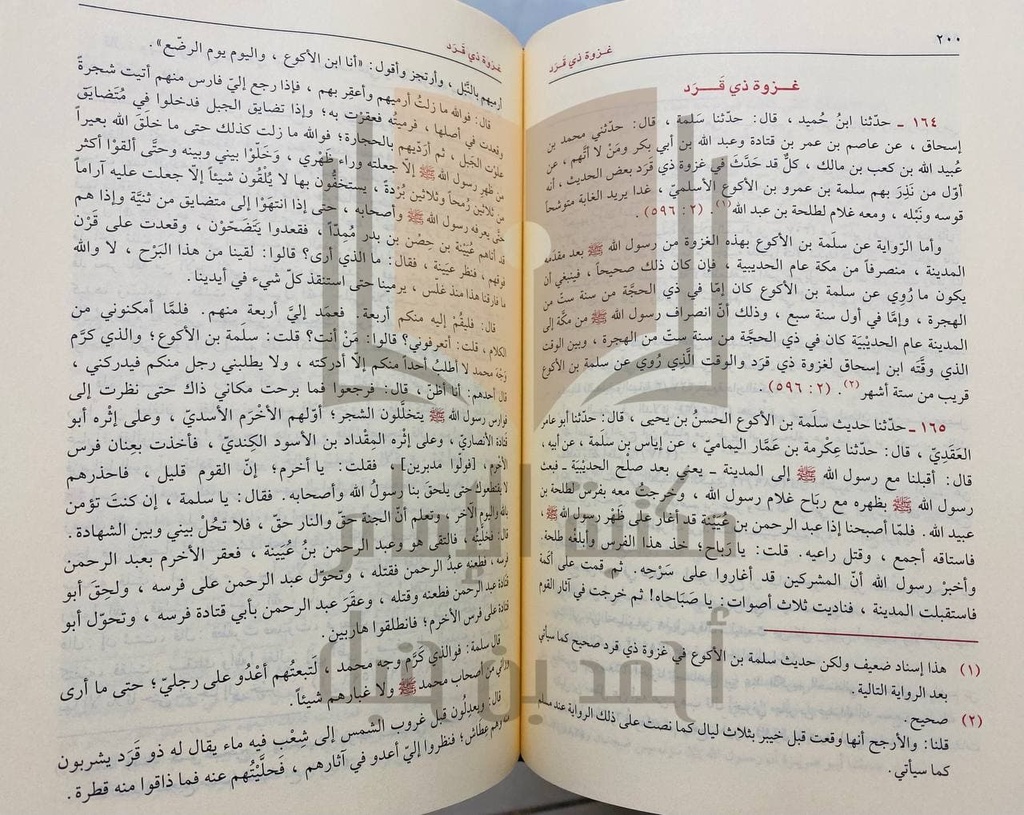 ٢٠٠
غزوة ذي قَرَد
غـزوة ذي قَـــرَد
١٦٤ ـ حدّثنا ابنُ حُميد ، قال: حدّثنا سَلمة ، قال: حدّثني محمد بن
إسحاق ، عن عاصم بن عمر بن قتادة وعبد الله بن أبي بكر ومَنْ لا أتَّهم ، عن
عُبيد الله بن كعب بن مالك ، كلٌّ قد حَدَّثَ في غزوة ذي قَرَد بعض الحديث ، أنه
أوّل من نَذِرَ بهم سلمة بن عمرو بن الأكوع الأسلميّ ، غدا يريد الغابة متوشّحاً
قوسه ونَبْله ، ومعه غلام لطلحة بن عبد الله(١). (٢: ٥٩٦) .
وأما الرّواية عن سلَمة بن الأكوع بهذه الغزوة من رسول الله ﷺ بعد مقدَمه
المدينة ، منصرفاً من مكة عام الحديبية ، فإن كان ذلك صحيحاً ، فينبغي أن
يكون ما رُوِي عن سلمة بن الأكوع كان إمّا في ذي الحجَّة من سنة ستّ من
الهجرة ، وإمّا في أول سنة سبع ، وذلك أنّ انصراف رسول الله ﷺ من مكّة إلى
المدينة عام الحديْبيَة كان في ذي الحجّة من سنة ستّ من الهجرة ، وبين الوقت
الذي وقّته ابن إسحاق لغزوة ذي قرَد والوقت الَّذِي رُوي عن سلمة بن الأكوع
قريب من ستة أشهر(٢). (٢: ٥٩٦)
١٦٥ ـ حدّثنا حديث سلَمة بن الأكوع الحسنُ بن يحيى ، قال: حدّثنا أبو عامر
العَقَديّ ، قال: حدّثنا عِكرمة بن عَمَّار اليماميّ ، عن إياس بن سلمة ، عن أبيه ،
قال: أقبلنا مع رسول الله ﷺ إلى المدينة ـ يعني بعد صلح الحديْبيَة ـ فبعث
رسول الله ﷺ بظهره مع ربَاح غلام رسول الله ، وخرجتُ معه بفرس لطلحة بن
عبيد الله . فلمّا أصبحنا إذا عبد الرحمن بن عُيَيْنة قد أغار على ظَهْر رسول الله ﷺ ،
فاستاقه أجمع ، وقتل راعيه. قلت: يا رَباح؛ خذ هذا الفرس وأبلغْه طلحة.
وأخبرْ رسول الله أنّ المشركين قد أغاروا على سَرْحِه. ثم قمت على أكَمة
فاستقبلت المدينة ، فناديت ثلاث أصوات: يا صَبَاحَاه! ثم خرجت في آثار القوم
(١) هذا إسناد ضعيف ولكن حديث سلمة بن الأكوع في غزوة ذي قرد صحيح كما سيأتي
بعد الرواية التالية .
(٢) صحيح.
قلنا: والأرجح أنها وقعت قبل خيبر بثلاث ليال كما نصت على ذلك الرواية عند مسلم
كما سيأتي .
غزوة ذي قَرَد
أرميهم بالنَّبْل ، وأرتجز وأقول: «أنا ابن الأكوع ، واليوم يوم الرضّع».
قال: فوالله ما زلتُ أرميهم وأعقِر بهم ، فإذا رجع إليّ فارس منهم أتيت شجرةً
وقعدت في أصلها ، فرميتُه فعقرْت به؛ وإذا تضايق الجبل فدخلوا في مُتضايَق
علوْت الجَبل ، ثم أرَدّيهم بالحجارة؛ فوالله ما زلت كذلك حتى ما خلَق الله بعيراً
من ظهر رسول الله ﷺ إلاّ جعلته وراء ظَهْري ، وَخَلَّوْا بيني وبينه وحتَّى ألقوْا أكثر
من ثلاثين رُمحاً وثلاثين بُرْدةً ، يستخفُّون بها لا يُلْقُون شيئاً إلاّ جعلت عليه آراماً
حتَّى يعرفه رسول الله ﷺ وأصحابه ، حتى إذا انتهَوْا إلى متضايق من ثنيَّة وإذا هم
قد أتاهم عُيَيْنة بن حِصْن بن بدر مُمِدّاً ، فقعدوا يَتَضَحَّوْن ، وقعدت على قَرْن
فوقهم ، فنظر عيينة ، فقال: ما الذي أرى؟ قالوا: لقينا من هذا البَرْح ، لا والله
ما فارقنا هذا منذ غلَس ، يرمينا حتى استنقذ كلّ شيء في أيدينا.
قال: فليقُم إليه منكم أربعة. فعمَد إليّ أربعة منهم. فلمَّا أمكنوني من
الكلام ، قلت: أتعرفوني؟ قالوا: مَنْ أنت؟ قلت: سلَمة بن الأكوع؛ والذي كرَّم
وَجْهَ محمد لا أطلبُ أحداً منكم إلاّ أدركته ، ولا يطلبني رجل منكم فيدركني ،
قال أحدهم: أنا أظنّ ، قال: فرجعوا فما برحت مكاني ذاك حتى نظرت إلى
فوارس رسول الله ﷺ يتخلَّلُون الشجر؛ أوّلهم الأخْرَم الأسديّ ، وعلى إثْره أبو
قتادة الأنصاريّ ، وعلى إثْره المِقْداد بن الأسود الكِنديّ ، فأخذت بعِنان فرس
الأخرم ، [فولّوا مدبرين] ، فقلت: يا أخرم؛ إنّ القوم قليل ، فاحذرهم
لا يقتطعوك حتى يلحقَ بنا رسولُ الله وأصحابه. فقال: يا سلمة ، إن كنتَ تؤمن
بالله واليوم الآخر ، وتعلم أنّ الجنة حقّ والنار حقّ ، فلا تحُلْ بيني وبين الشهادة.
قال: فخلّيتُه ، فالتقى هو وعبد الرحمن بنُ عُيَيْنة ، فعقر الأخرم بعبد الرحمن
فرسه ، فطعنه عبد الرحمن فقتله ، وتحوّل عبد الرحمن على فرسه ، ولحِقَ أبو
قتادة عبد الرحمن فطعنه وقتله ، وعقَرَ عبد الرحمن بأبي قتادة فرسه ، وتحوّل أبو
قتادة على فرس الأخرم؛ فانطلقوا هاربين.
قال سلمة: فوالذي كَرَّم وجه محمد ، لَتبعتُهم أعْدُو على رجليّ؛ حتى ما أرى
ورائي من أصحاب محمد ﷺ ولا غبارهم شيئاً.
قال: ويعدِلُون قبل غروب الشمس إلى شِعْب فيه ماء يقال له ذو قَرَد يشربون
منه وهم عِطَاش؛ فنظروا إليّ أعدو في آثارهم ، فَحلَّيْتُهم عنه فما ذاقوا منه قطرة.
مكتبة الإمام
أحمد بن حنبل